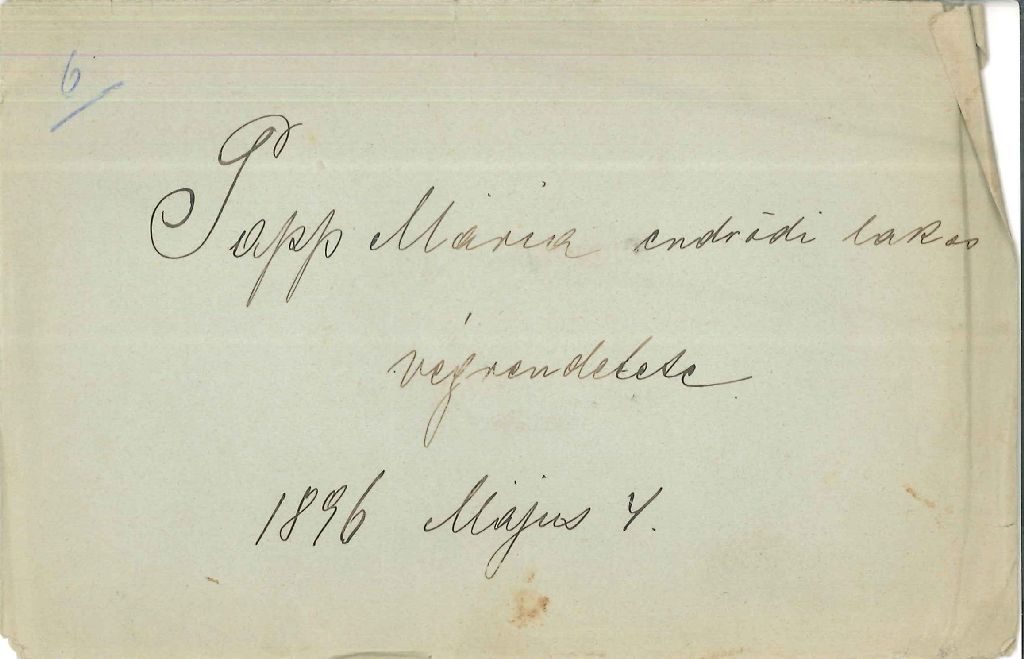 6
Papp Mária endrődi lakos
végrendelete
1896 Május 4.